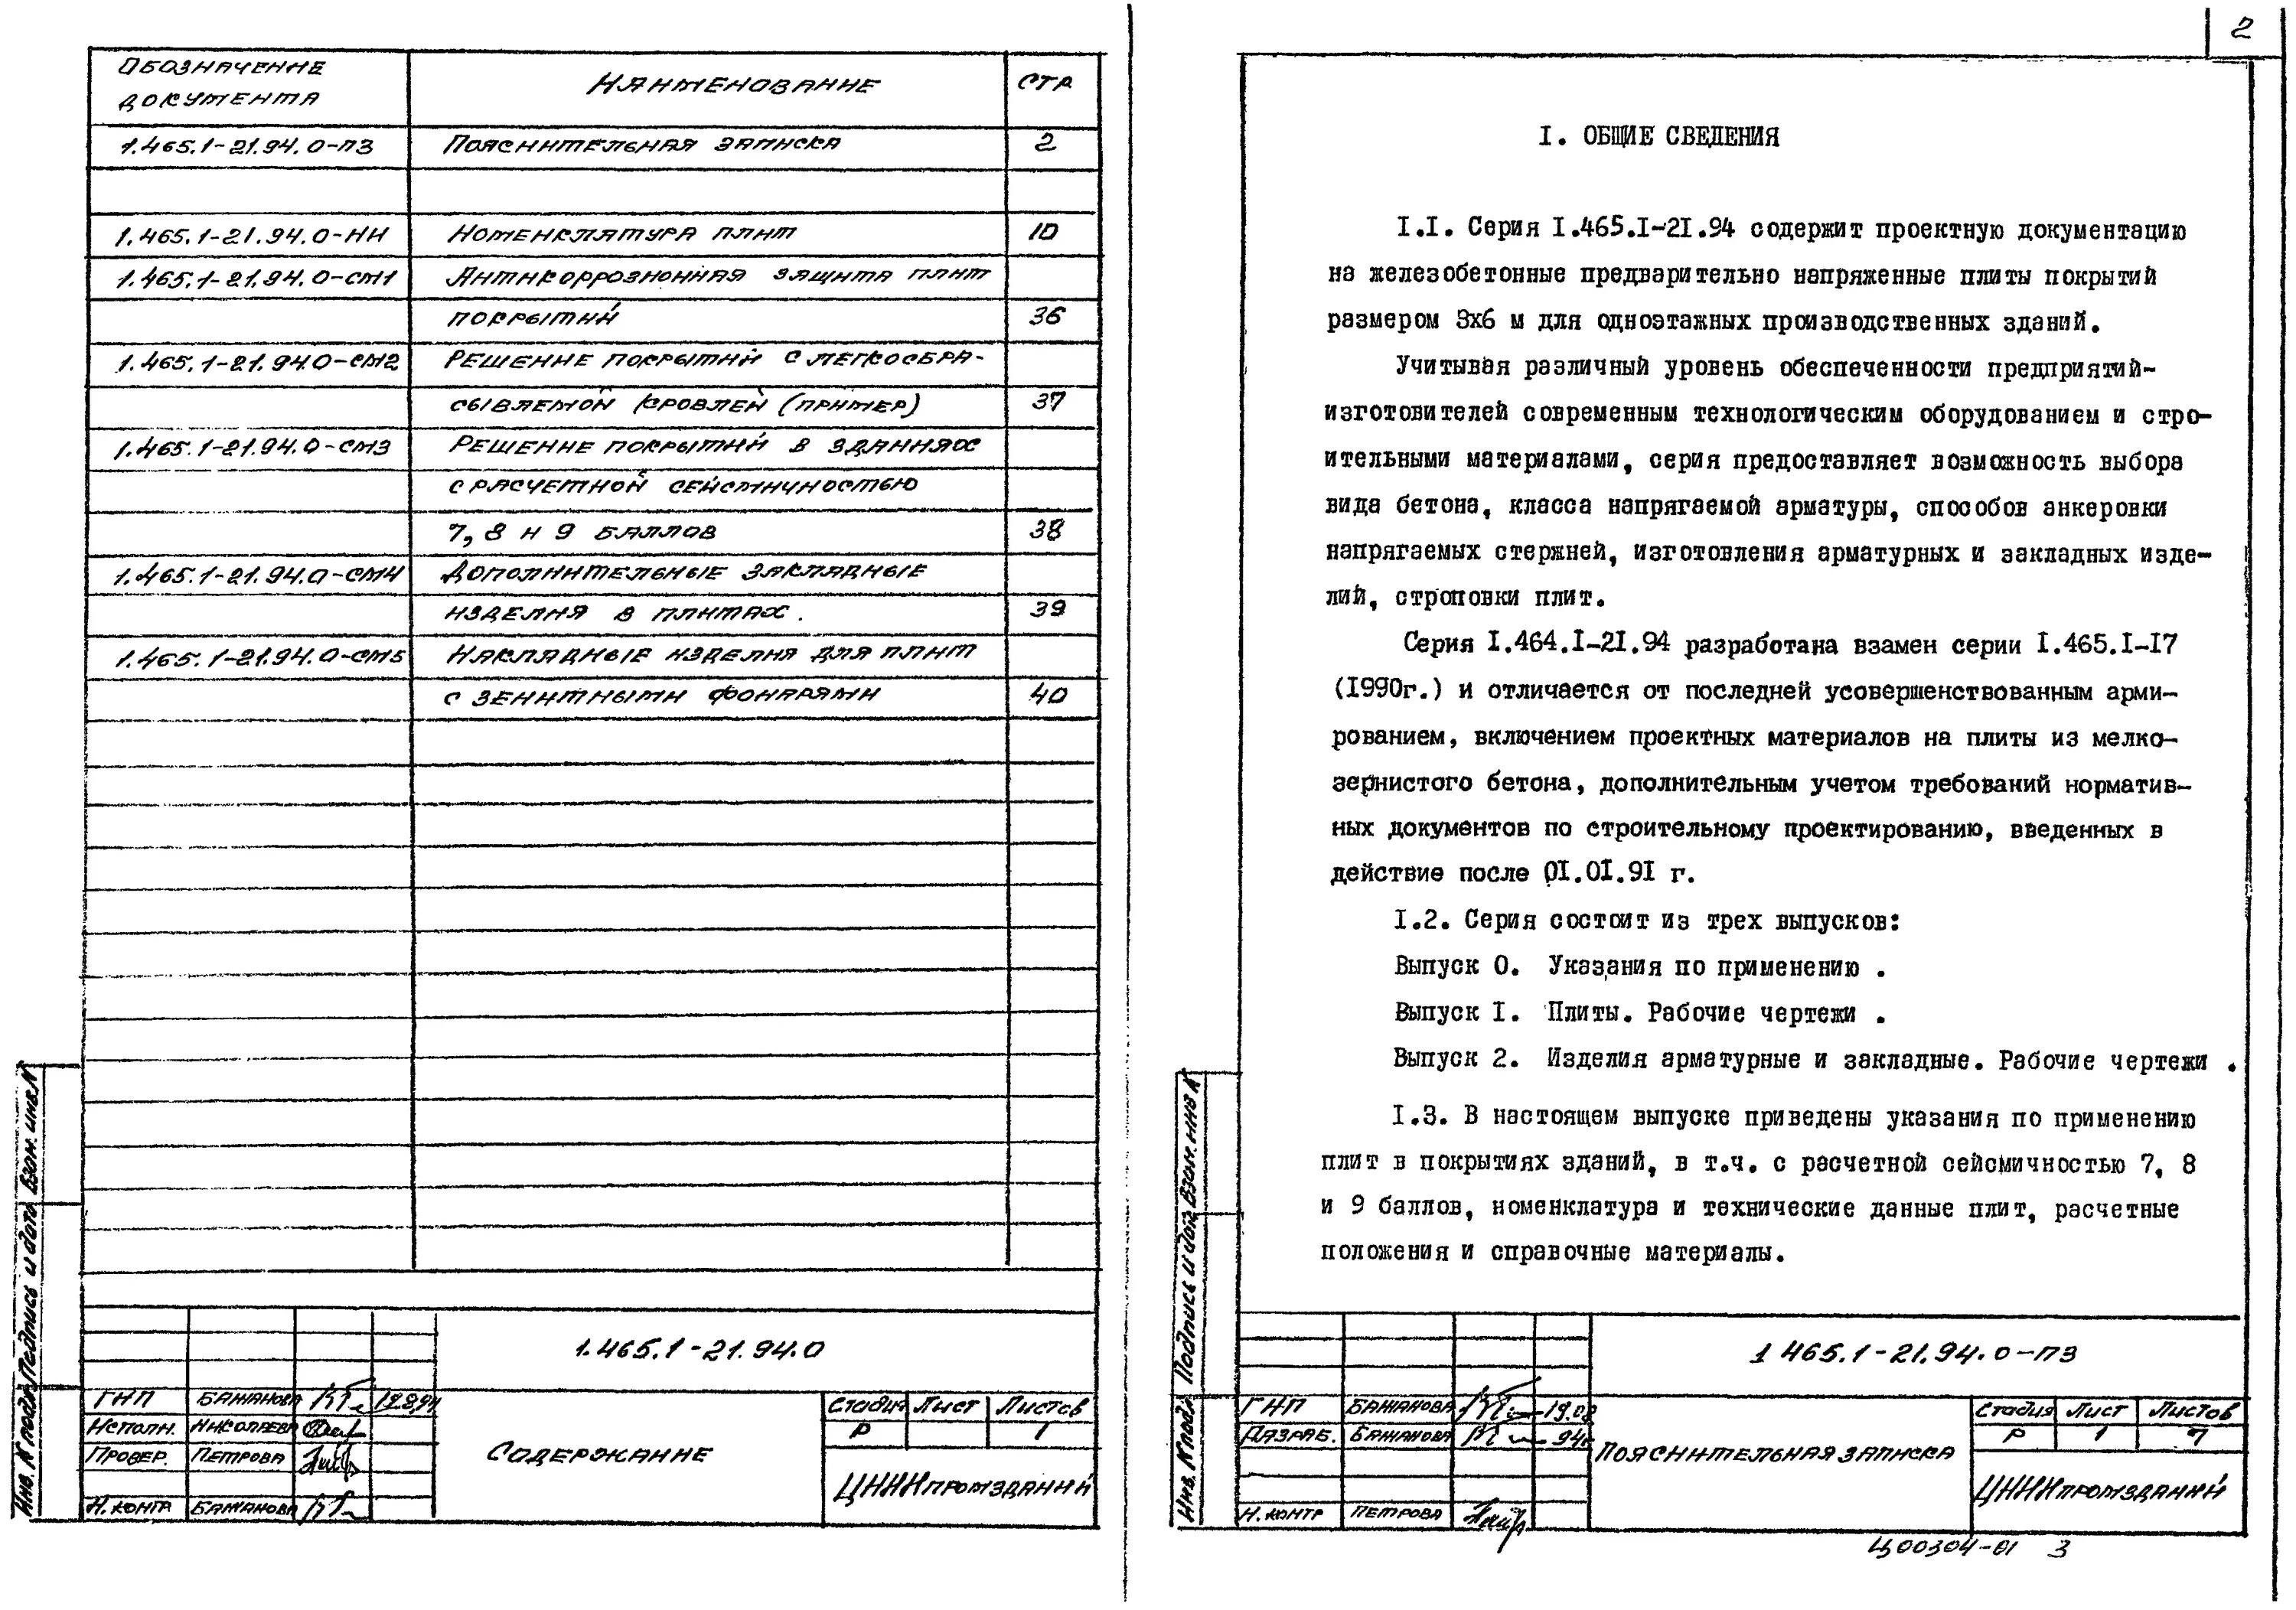 Обозначение документа Наименование Стр
1.465.1-21.94.0-ПЗ Пояснительная записка 2
1.465.1-21.94.0-НИ Номенклатура плит 10
1.465.1-21.94.0-СМ1 Антикоррозионная защита плит
покрытий 36
1.465.1-21.94.0-СМ2 Решение покрытий с легкосбра-
сываемой кровлей (пример) 37
1.465.1-21.94.0-СМ3 Решение покрытий в зданиях
с расчетной сейсмичностью
7, 8 и 9 баллов 38
1.465.1-21.94.0-СМ4 Дополнительные закладные
изделия в плитах. 39
1.465.1-21.94.0-СМ5 Накладные изделия для плит
с зенитными фонарями 40
Инв. N подл. Подпись и дата Взам. инв. N
1.465.1-21.94.0
ГИП Бажанова 19.8.94
Исполн. Николаева
Провер. Петрова
Н.контр Бажанова
Содержание
Стадия Лист Листов
Р 1
ЦНИИпромзданий
2
I. ОБЩИЕ СВЕДЕНИЯ
I.I. Серия I.465.I-2I.94 содержит проектную документацию
на железобетонные предварительно напряженные плиты покрытий
размером 3х6 м для одноэтажных производственных зданий.
Учитывая различный уровень обеспеченности предприятий-
изготовителей современным технологическим оборудованием и стро-
ительными материалами, серия предоставляет возможность выбора
вида бетона, класса напрягаемой арматуры, способов анкеровки
напрягаемых стержней, изготовления арматурных и закладных изде-
лий, строповки плит.
Серия I.464.I-2I.94 разработана взамен серии I.465.I-I7
(I990г.) и отличается от последней усовершенствованным арми-
рованием, включением проектных материалов на плиты из мелко-
зернистого бетона, дополнительным учетом требований норматив-
ных документов по строительному проектированию, введенных в
действие после 0I.0I.9I г.
I.2. Серия состоит из трех выпусков:
Выпуск 0. Указания по применению .
Выпуск I. Плиты. Рабочие чертежи .
Выпуск 2. Изделия арматурные и закладные. Рабочие чертежи .
I.3. В настоящем выпуске приведены указания по применению
плит в покрытиях зданий, в т.ч. с расчетной сейсмичностью 7, 8
и 9 баллов, номенклатура и технические данные плит, расчетные
положения и справочные материалы.
Инв. N подл Подпись и дата Взам. инв N
1 465.1-21.94.0-ПЗ
ГИП Бажанова 19.08
Разраб. Бажанова 94г
Н.контр Петрова
Пояснительная записка
Стадия Лист Листов
Р 1 7
ЦНИИпромзданий
Ц00304-01 3